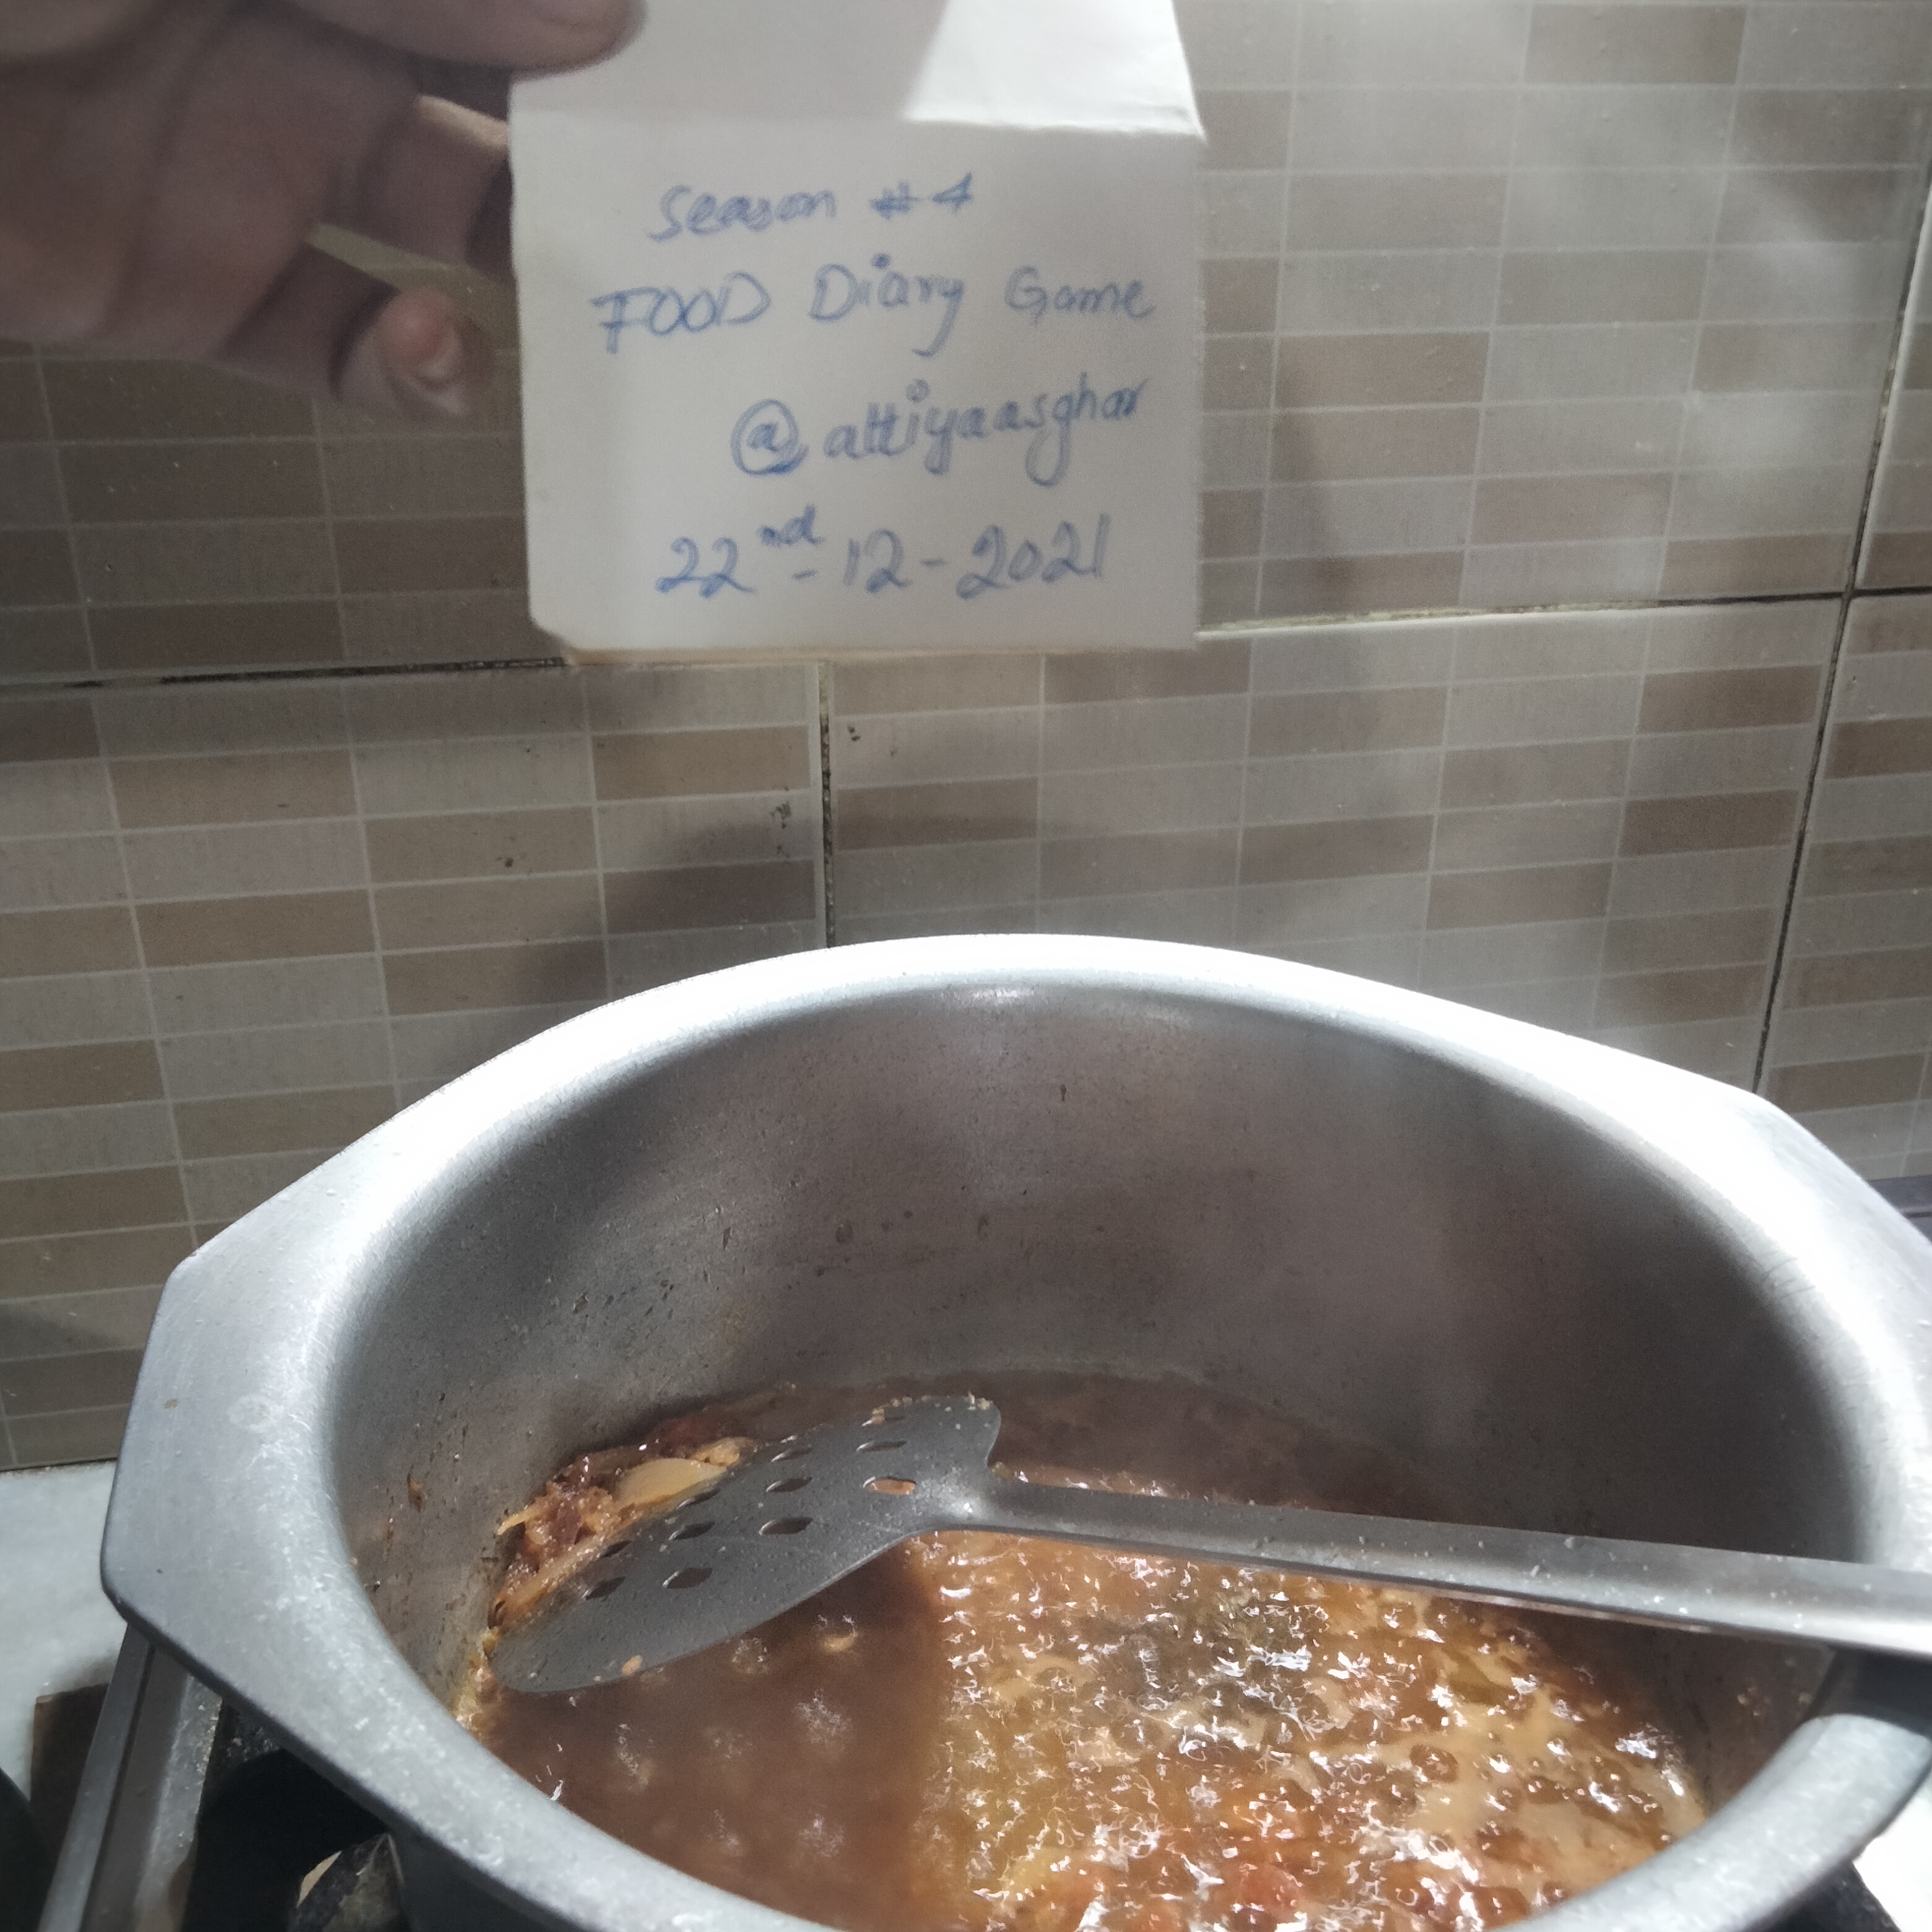 Season #4
FOOD Diary Game
@attiyaasghar
22nd-12-2021